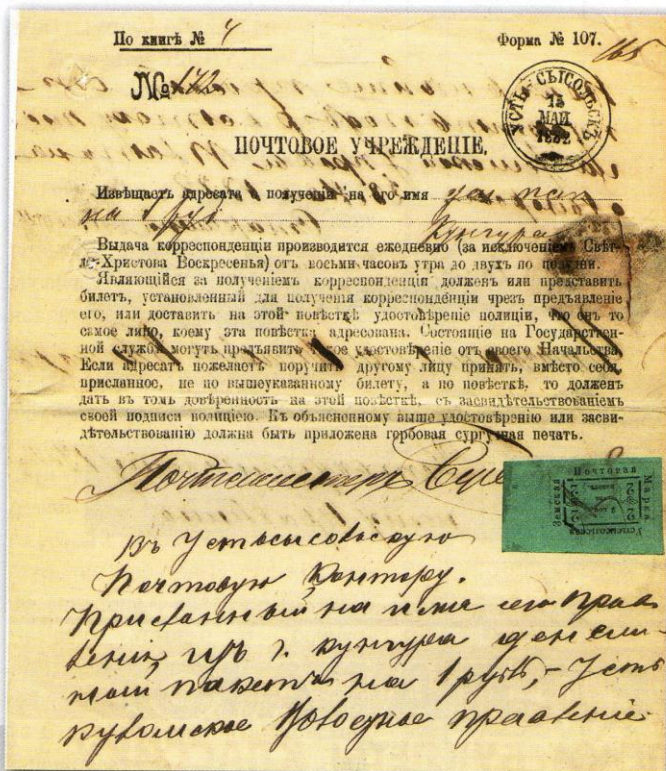 По книгѣ № 4
Форма № 107.
165
№ 172
УСТЬ-СЫСОЛЬСКЪ
13
МАЙ
1882
ПОЧТОВОЕ УЧРЕЖДЕНІЕ,
Извѣщаетъ адресата о полученіи на его имя
на 1 руб Кунгура
Выдача корреспонденціи производится ежедневно (за исключеніемъ Свѣт-
ло-Христова Воскресенья) отъ восьми часовъ утра до двухъ по полудни.
Являющійся за полученіемъ корреспонденціи долженъ или представить
билетъ, установленный для полученія корреспонденціи чрезъ предъявленіе
его, или доставить на этой повѣсткѣ удостовѣреніе полиціи, что онъ то
самое лицо, коему эта повѣстка адресована. Состоящіе на Государствен-
ной службѣ могутъ предъявить такое удостовѣреніе отъ своего Начальства.
Если адресатъ пожелаетъ поручить другому лицу принять, вмѣсто себя,
присланное, не по вышеуказанному билету, а по повѣсткѣ, то долженъ
дать въ томъ довѣренность на этой повѣсткѣ, съ засвидѣтельствованіемъ
своей подписи полиціею. Къ объясненному выше удостовѣренію или засви-
дѣтельствованію должна быть приложена гербовая сургучная печать.
Почтмейстеръ
Почтовая
Марка
Земская
Устьсысольска
2 2
Въ Устьсысольскую
Почтовую Контору.
Присланный на имя сего Прав
ленія, изъ г. Кунгура денеж
ный пакетъ на 1 руб, - Усть
куломское Волостное правленіе